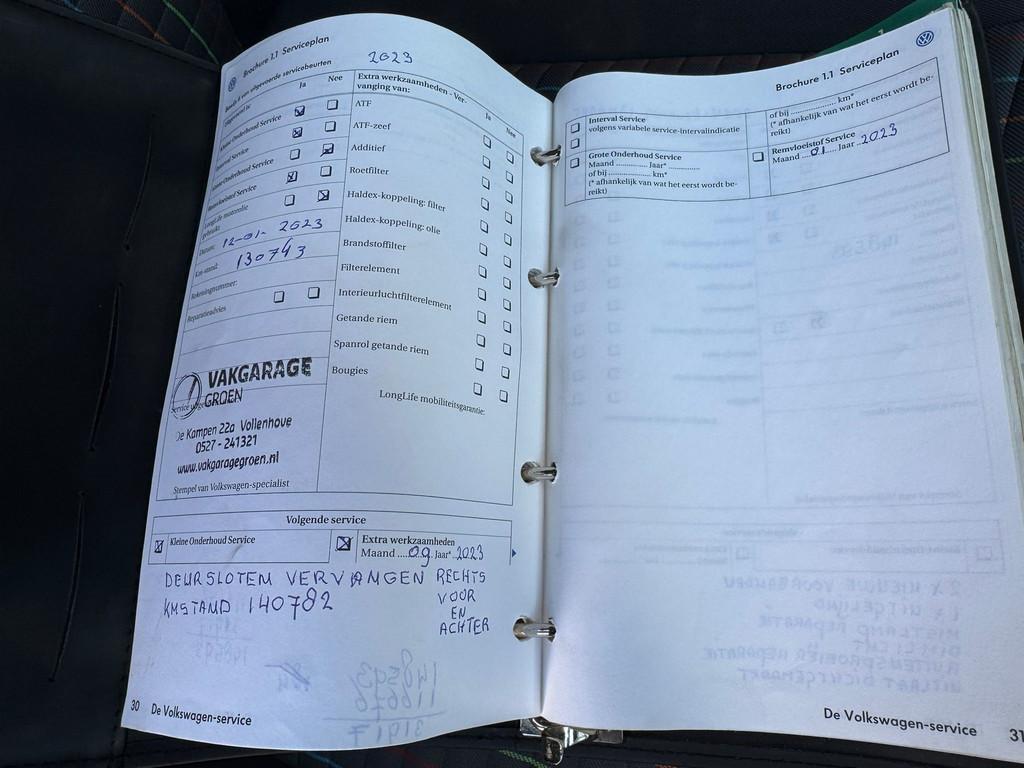 Brochure 1.1 Serviceplan
2023
Ja Nee
Kleine Onderhoud Service
Interval Service
Grote Onderhoud Service
Remvloeistof Service
LongLife motorolie
gebruikt
Datum: 12-01- 2023
Km-stand: 130743
Rekeningnummer:
Reparatieadvies
VAKGARAGE
GROEN
De Kampen 22a Vollenhove
0527 - 241321
www.vakgaragegroen.nl
Stempel van Volkswagen-specialist
Extra werkzaamheden - Ver-
vanging van:
Ja Nee
ATF
ATF-zeef
Additief
Roetfilter
Haldex-koppeling: filter
Haldex-koppeling: olie
Brandstoffilter
Filterelement
Interieurluchtfilterelement
Getande riem
Spanrol getande riem
Bougies
LongLife mobiliteitsgarantie:
Volgende service
Kleine Onderhoud Service
Extra werkzaamheden
Maand ....09. Jaar* .2023
DEURSLOTEM VERVANGEN RECHTS
VOOR
EN
ACHTER
KMSTAND 140782
30 De Volkswagen-service
Brochure 1.1 Serviceplan
Interval Service
volgens variabele service-intervalindicatie
Grote Onderhoud Service
Maand .............. Jaar* ..............
of bij .................. km*
(* afhankelijk van wat het eerst wordt be-
reikt)
of bij .................. km*
(* afhankelijk van wat het eerst wordt be-
reikt)
Remvloeistof Service
Maand ...01... Jaar ..2023
De Volkswagen-service 31